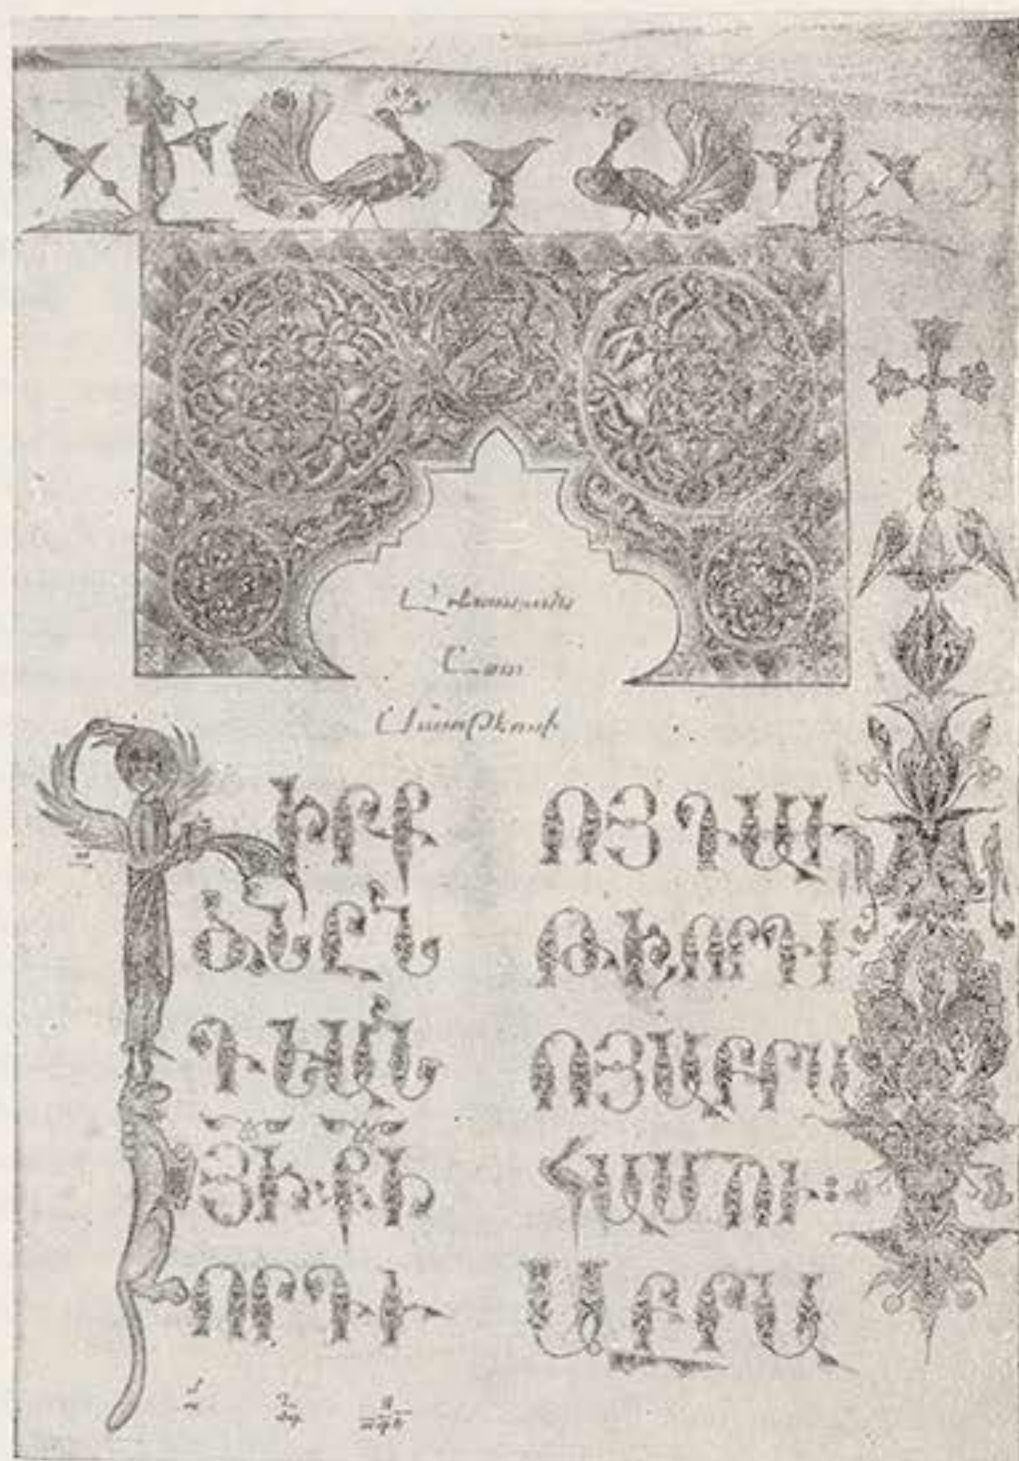 Աւետարան
Ըստ
Մատթէոսի
ԳԻՐՔ
ԾՆԸՆ
ԴԵԱՆ
ՅԻ ՔԻ
ՈՐԴՒ
ՈՅ ԴԱՒ
ԹԻ ՈՐԴՒ
ՈՅ ԱԲՐԱ
ՀԱՄՈՒ։
ԱԲՐԱ